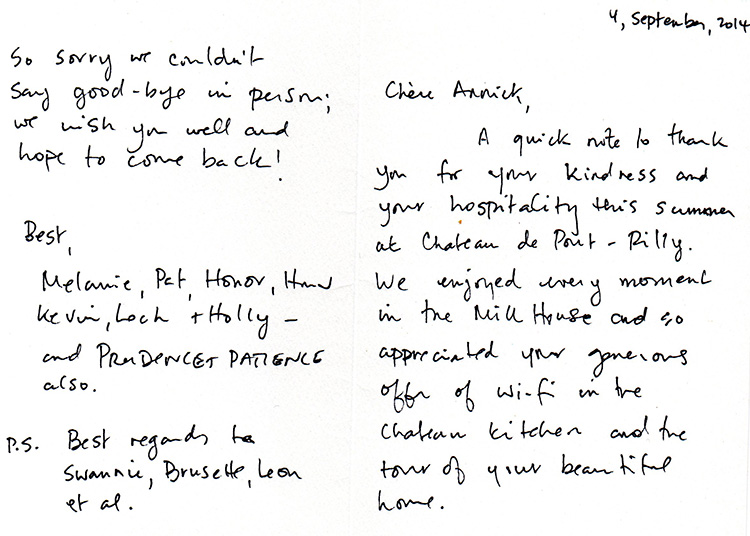 4, September, 2014
Chère Annick,
A quick note to thank
you for your kindness and
your hospitality this summer
at Chateau de Pont-Rilly.
We enjoyed every moment
in the Mill House and so
appreciated your generous
offer of wi-fi in the
Chateau kitchen and the
tour of your beautiful
home.
So sorry we couldn't
say good-bye in person;
we wish you well and
hope to come back!
Best,
Melanie, Pat, Honor,
Kevin, Loch + Holly –
and PRUDENCE + PATIENCE
also.
P.S. Best regards to
Swannie, Brusette, Leon
et al.